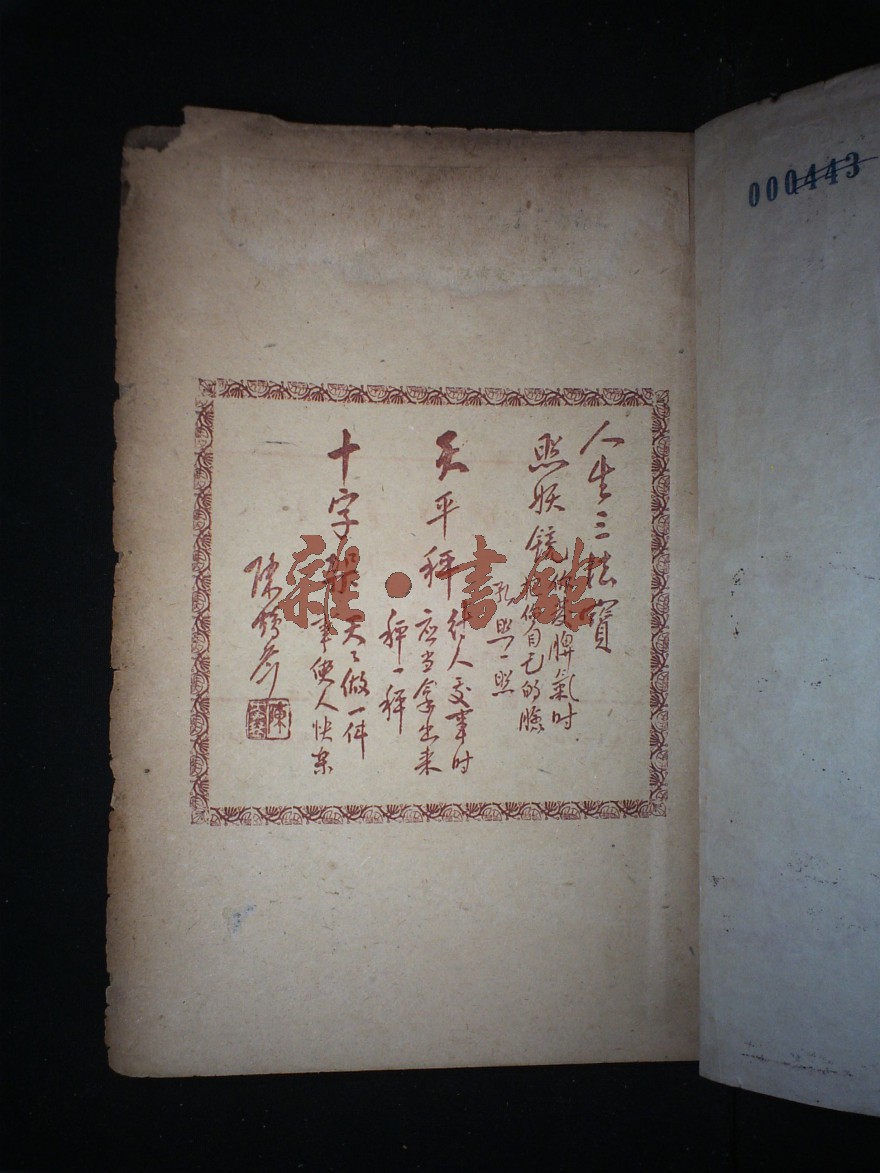 人生三法寶
照妖鏡
你发脾氣时
把你自己的臉
孔照一照
天平秤
待人交事时
应当拿出来
秤一秤
十字架
天天做一件
事使人快樂
陳鶴琴
陳
雜·書館
000443